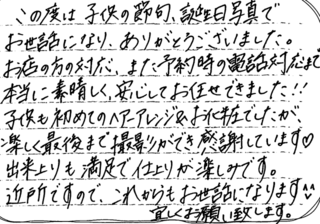 この度は子供の節句、誕生日写真で
お世話になり、ありがとうございました。
お店の方の対応、また予約時の電話対応まで
本当に素晴しく、安心してお任せできました!!
子供も初めてのヘアーアレンジ&お化粧でしたが、
楽しく最後まで撮影ができ感謝しています♡
出来上りも満足で仕上りが楽しみです。
近所ですので、これからもお世話になります
宜しくお願い致します。